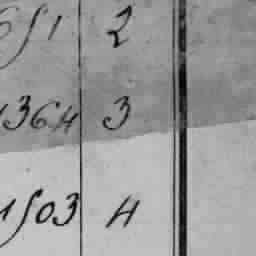 651 2
1364 3
1503 4